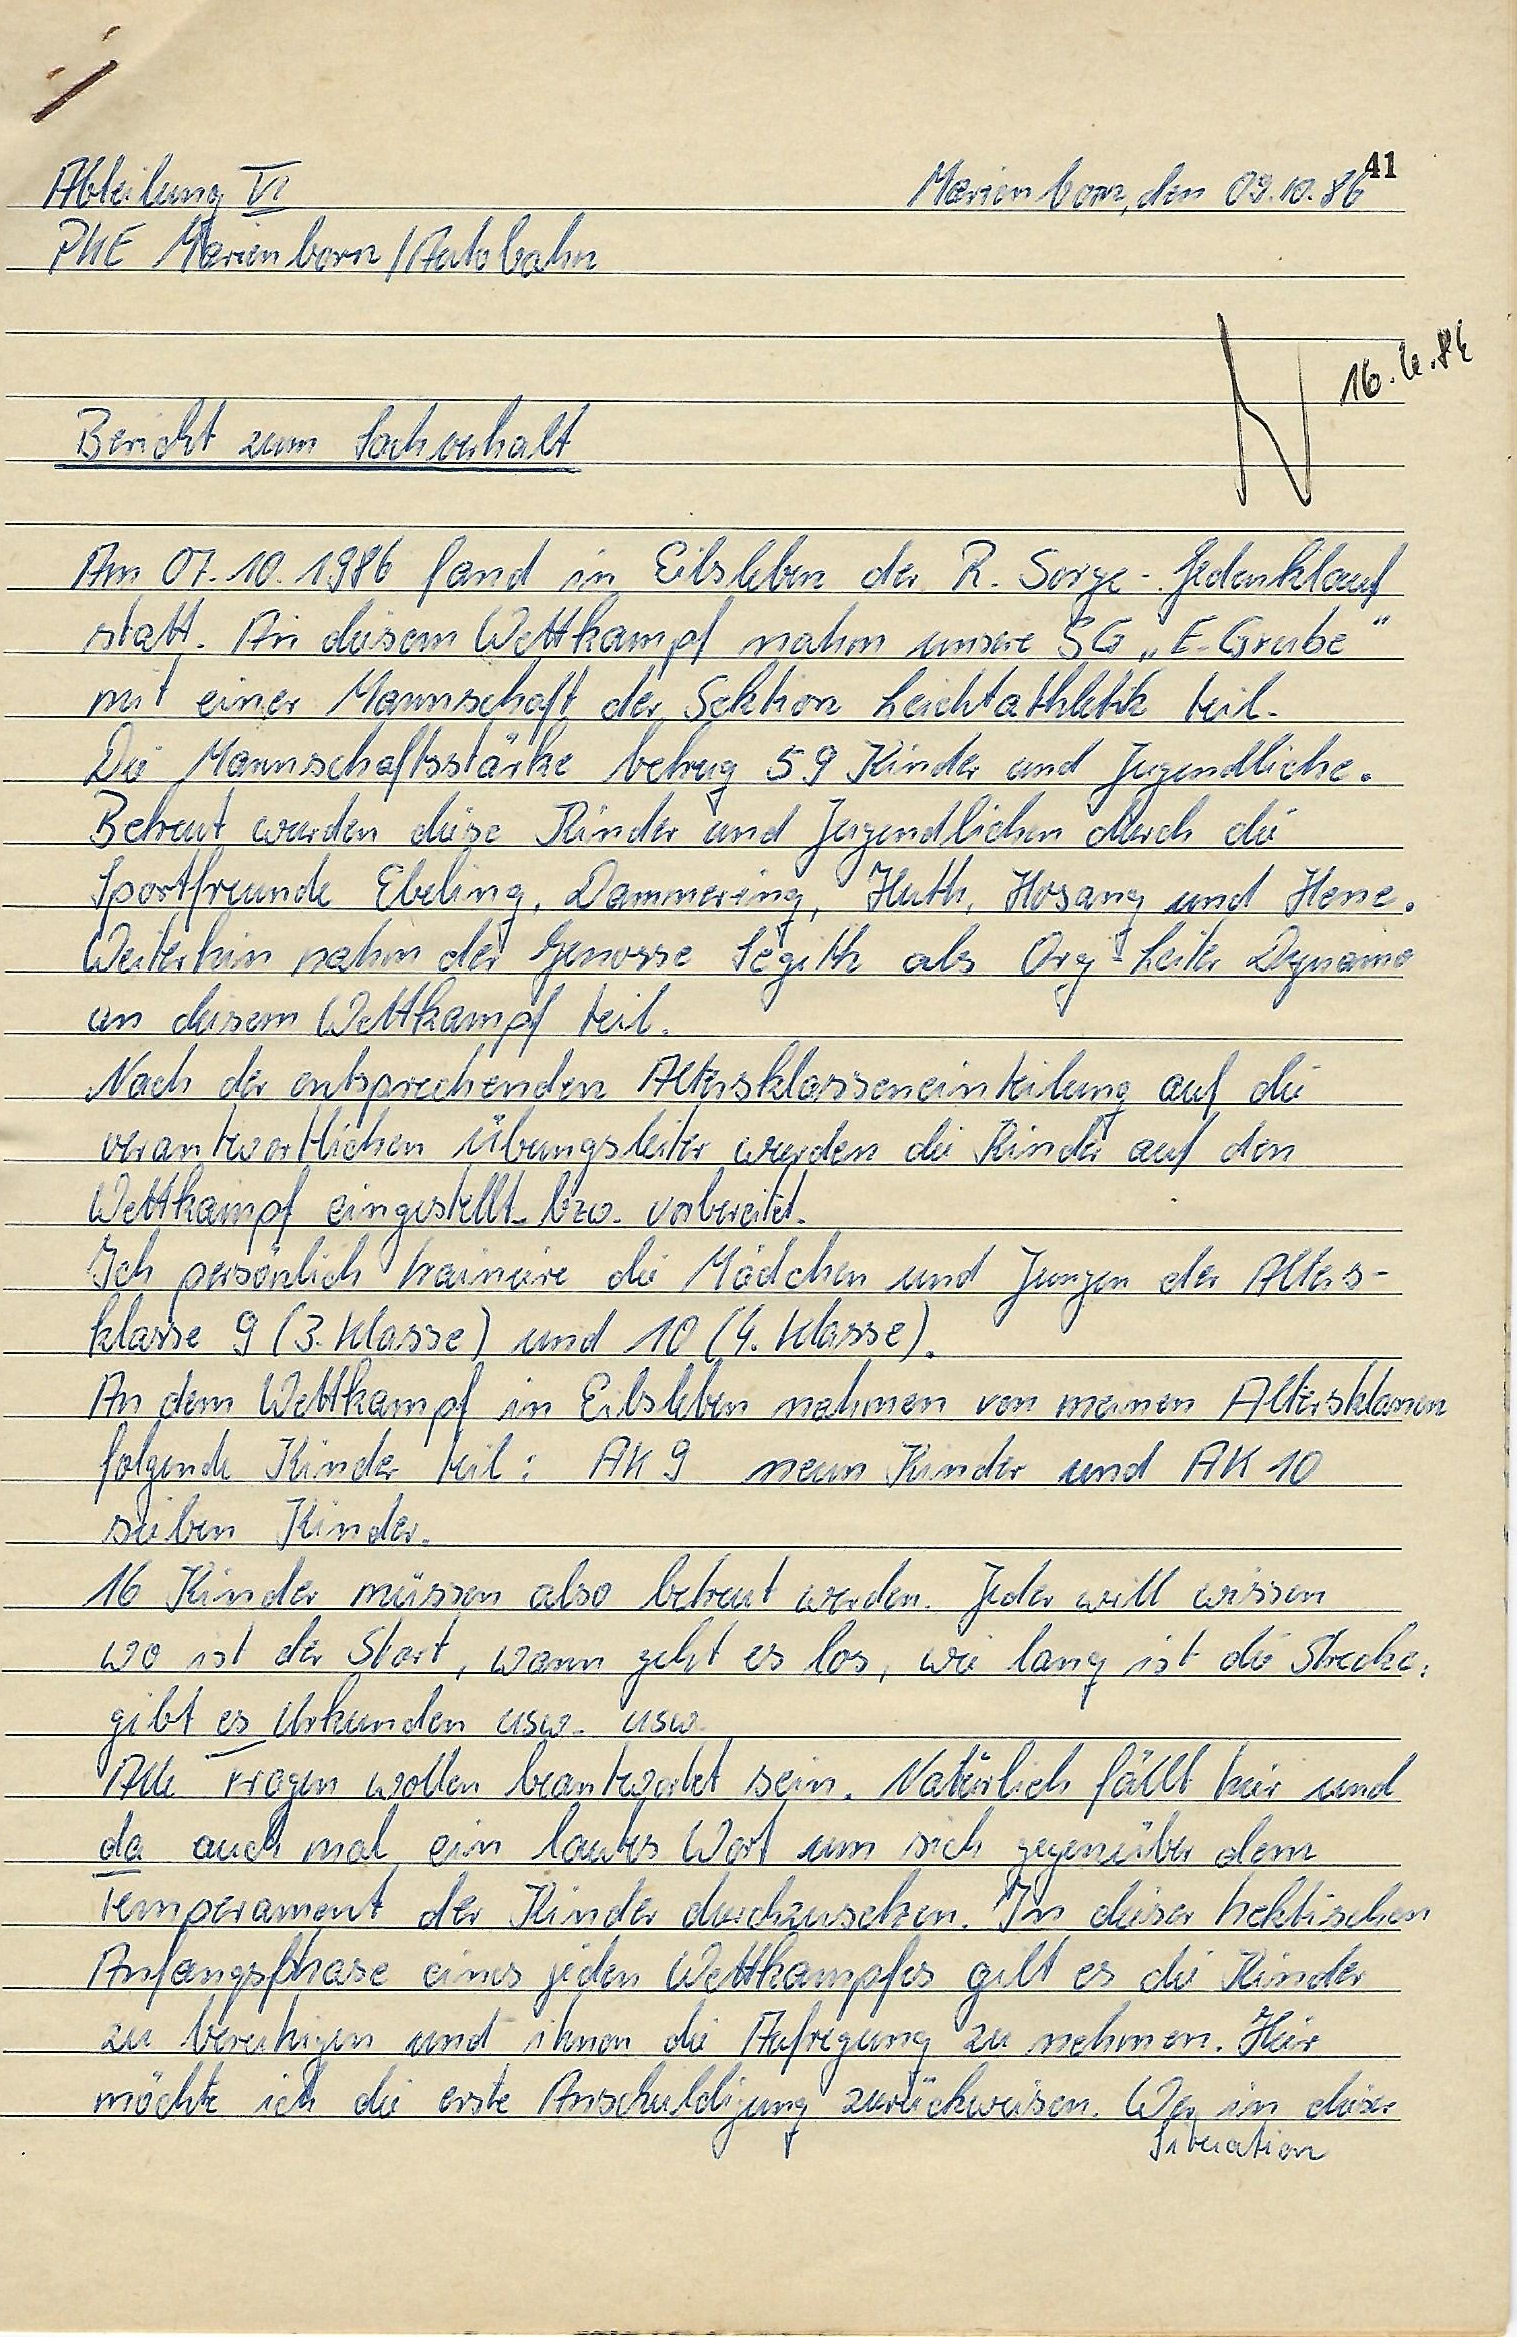 41
Abteilung VI Marienborn, den 09.10.86
PKE Marienborn/Autobahn
16.
Bericht zum Sachverhalt
Am 07.10.1986 fand in Eilsleben der R. Sorge-Gedenklauf
statt. An diesem Wettkampf nahm unsere SG „E-Grube"
mit einer Mannschaft der Sektion Leichtathletik teil.
Die Mannschaftsstärke betrug 59 Kinder und Jugendliche.
Betreut wurden diese Kinder und Jugendlichen durch die
Sportfreunde Ebeling, Dammering, Huth, Hosang und Hene.
Weiterhin nahm der Genosse Segith als Org-Leiter Dynamo
an diesem Wettkampf teil.
Nach der entsprechenden Altersklasseneinteilung auf die
verantwortlichen Übungsleiter wurden die Kinder auf den
Wettkampf eingestellt bzw. vorbereitet.
Ich persönlich trainiere die Mädchen und Jungen der Alters-
klasse 9 (3. Klasse) und 10 (4. Klasse).
An dem Wettkampf in Eilsleben nahmen von meinen Altersklassen
folgende Kinder teil: AK 9 neun Kinder und AK 10
sieben Kinder.
16 Kinder müssen also betreut werden. Jeder will wissen
wo ist der Start, wann geht es los, wie lang ist die Strecke,
gibt es Urkunden usw. usw.
Alle Fragen wollen beantwortet sein. Natürlich fällt hier und
da auch mal ein lautes Wort um sich gegenüber dem
Temperament der Kinder durchzusetzen. In dieser hektischen
Anfangsphase eines jeden Wettkampfes gilt es die Kinder
zu beruhigen und ihnen die Aufregung zu nehmen. Hier
möchte ich die erste Anschuldigung zurückweisen. Wer in dieser
Situation